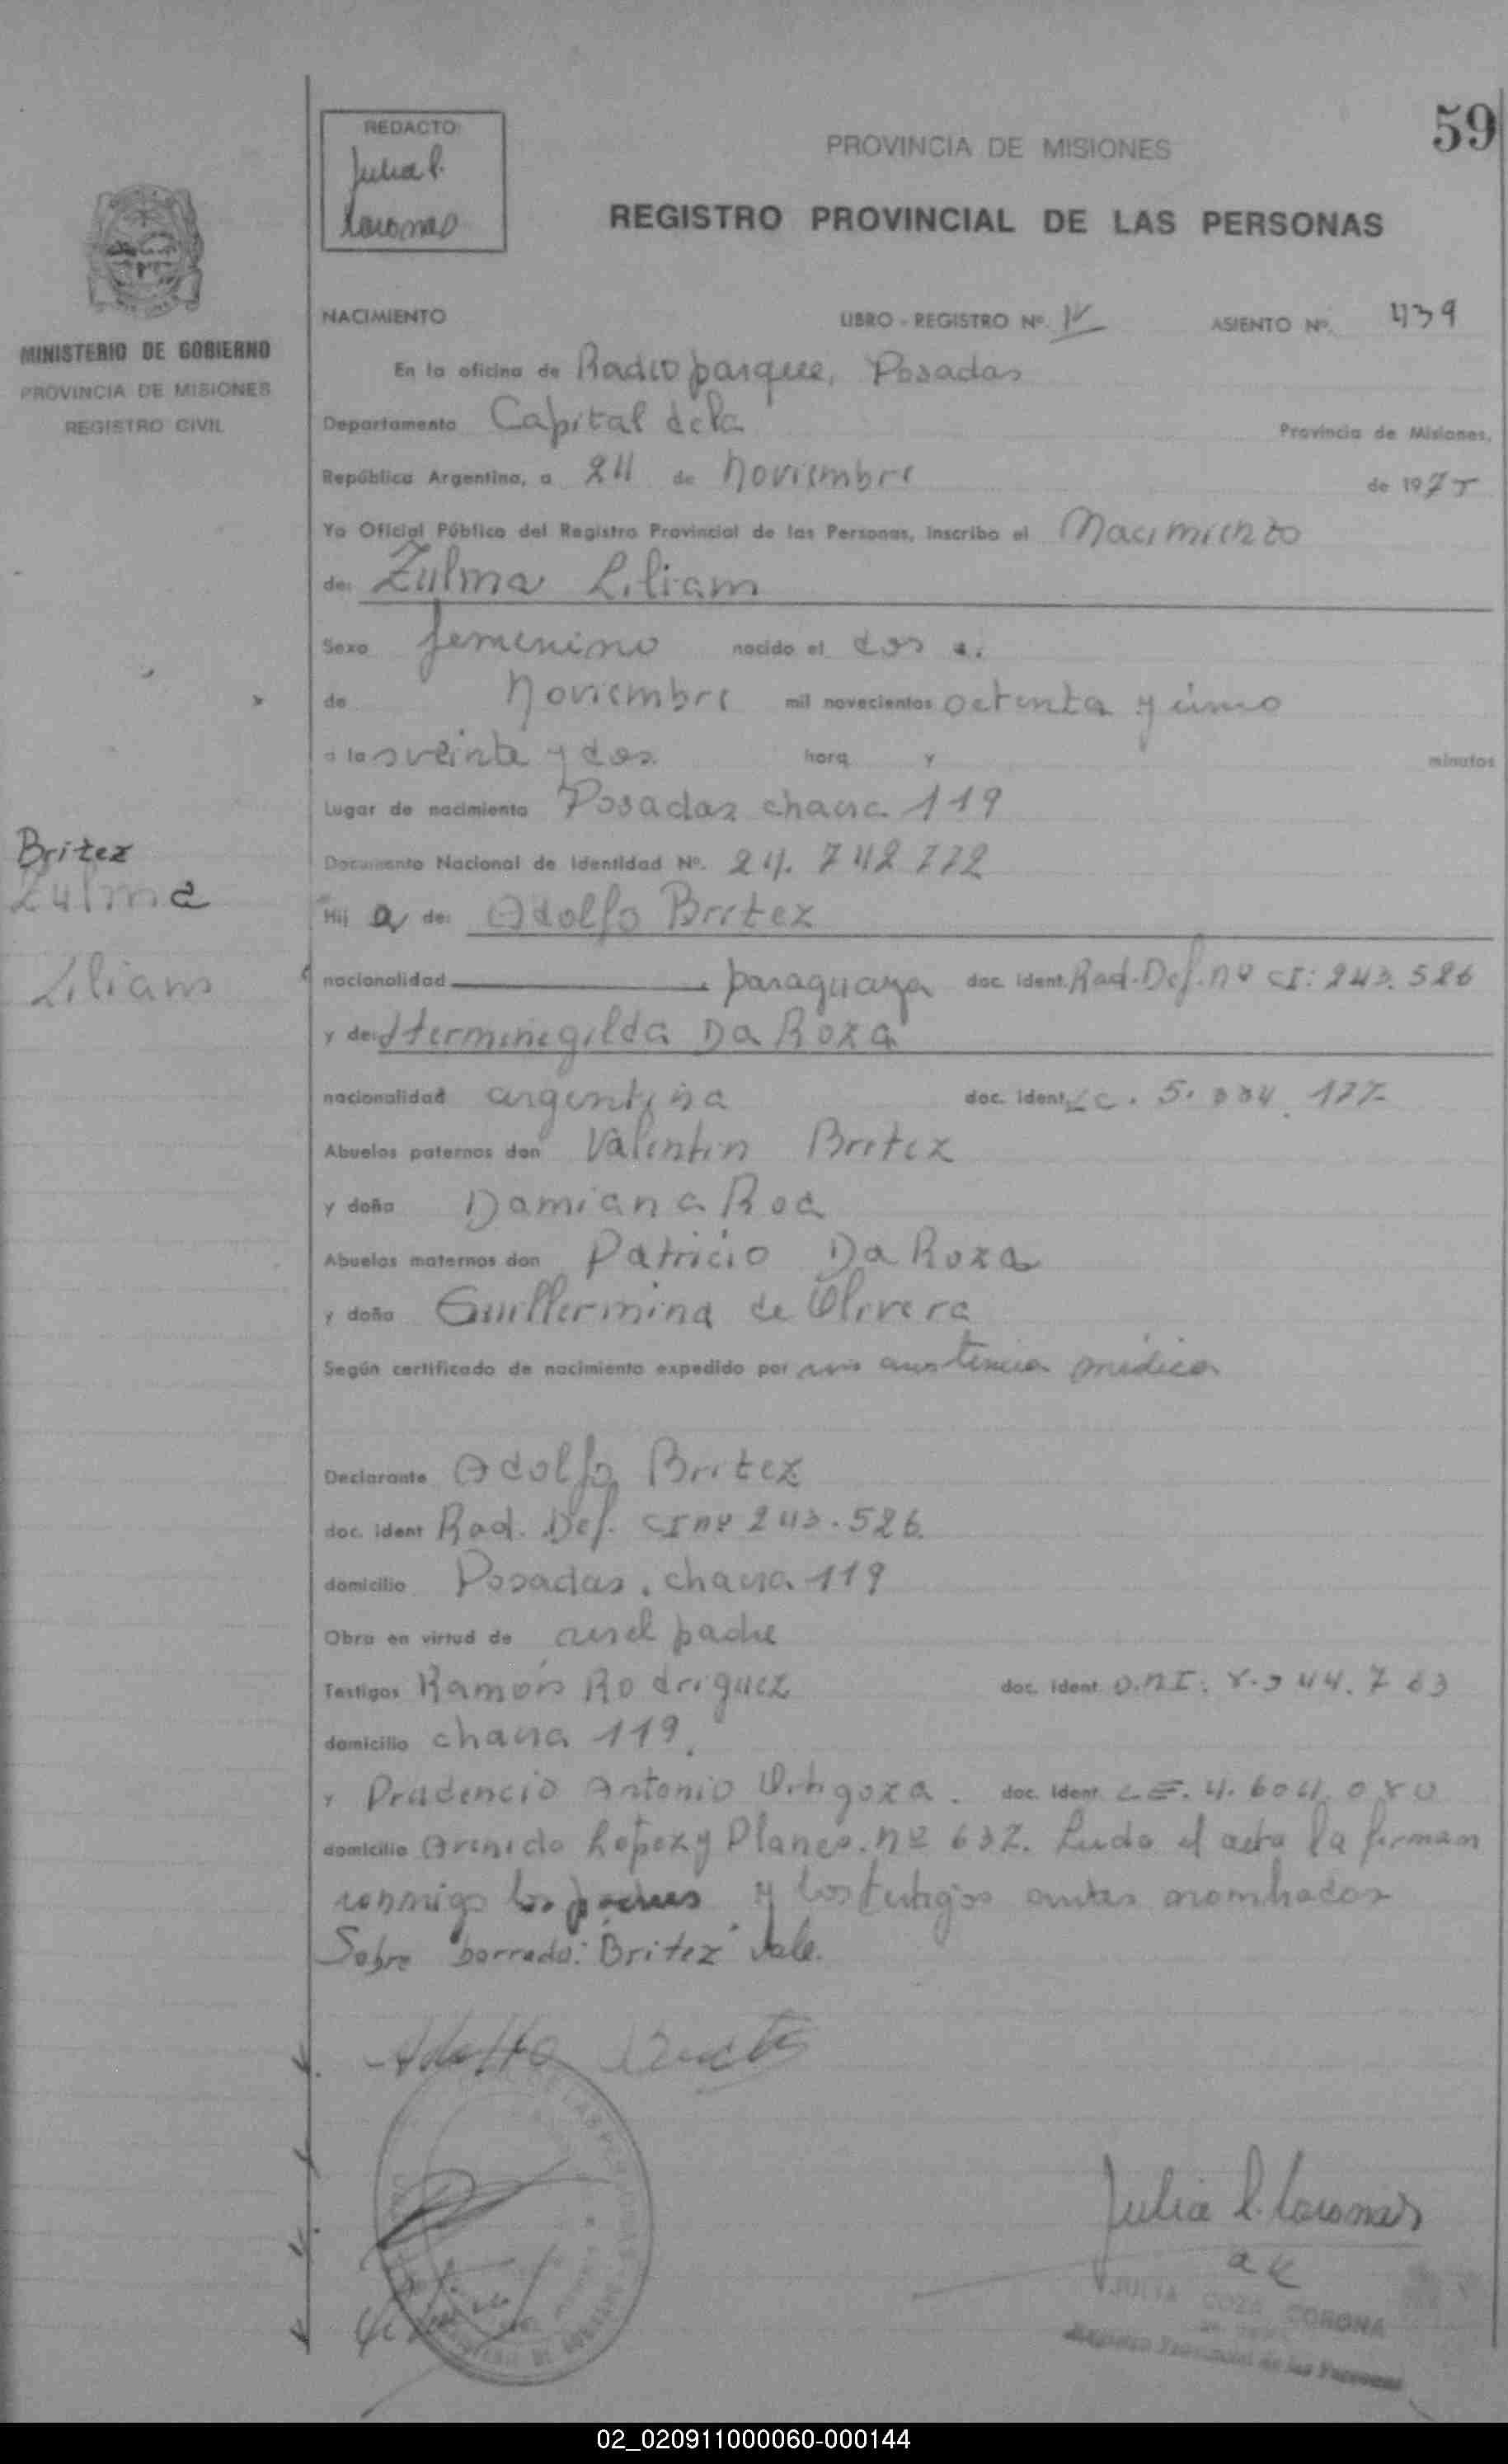 59
REDACTO:
Julia P.
Coronas
PROVINCIA DE MISIONES
REGISTRO PROVINCIAL DE LAS PERSONAS
MINISTERIO DE GOBIERNO
PROVINCIA DE MISIONES
REGISTRO CIVIL
NACIMIENTO LIBRO - REGISTRO Nº. IV ASIENTO Nº. 439
En la oficina de Radio parque, Posadas
Departamento Capital dela Provincia de Misiones,
República Argentina, a 24 de Noviembre de 197
Yo Oficial Público del Registro Provincial de las Personas, inscribo el Nacimiento
de: Zulma Liliam
Sexo femenino nacido el dos
de Noviembre mil novecientos y uno
a las veinte y dos hora y minutos
Lugar de nacimiento Posadas chacra 119
Documento Nacional de Identidad Nº. 24. 742 772
Britez
Zulma
Liliam
Hij a de: Adolfo Britez
nacionalidad paraguaya doc. ident. Rad. Def. nº CI: 243. 526
y de: Herminegilda Da Roza
nacionalidad argentina doc. ident. LC. 5. 177
Abuelos paternos don Valentin Britez
y doña Damiana Roa
Abuelos maternos don Patricio Da Roza
y doña Guillermina de Olivera
Según certificado de nacimiento expedido por sin asistencia médica
Declarante Adolfo Britez
doc. ident Rad. Def. CI nº 243. 526.
domicilio Posadas. chacra 119
Obra en virtud de ser el padre
Testigos Ramón Rodriguez doc. ident. D.N.I. 44. 7 63
domicilio chacra 119.
y Prudencio Antonio Ortigoza. doc. ident. L.E. 4. 604. 080
domicilio Avenida Lopez y Planes. nº 632. Leida el acta la firman
conmigo los padres y los testigos antes nombrados
Sobre borrado: "Britez" Vale.
Adolfo
Julia P. Coronas
JULIA COZA CORONA
Registro Provincial de las Personas
02_020911000060-000144